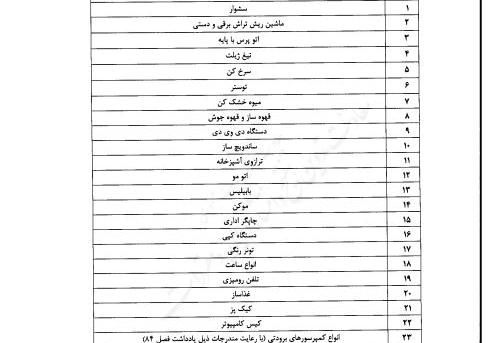 ۱ سشوار
۲ ماشین ریش تراش برقی و دستی
۳ اتو پرس با پایه
۴ تیغ ژیلت
۵ سرخ کن
۶ توستر
۷ میوه خشک کن
۸ قهوه ساز و قهوه جوش
۹ دستگاه دی وی دی
۱۰ ساندویچ ساز
۱۱ ترازوی آشپزخانه
۱۲ اتو مو
۱۳ بابیلیس
۱۴ موکن
۱۵ چاپگر اداری
۱۶ دستگاه کپی
۱۷ تونر رنگی
۱۸ انواع ساعت
۱۹ تلفن رومیزی
۲۰ غذاساز
۲۱ کیک پز
۲۲ کیس کامپیوتر
۲۳ انواع کمپرسورهای برودتی (با رعایت مندرجات ذیل یادداشت فصل ۸۴)